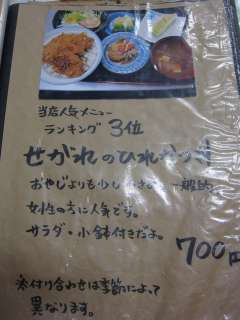 当店人気メニュー
ランキング 3位
せがれのひれかつ丼
おやじよりも少し
女性の方に人気です。
サラダ・小鉢付きだよ。
700円
添付け合わせは季節によって
異なります。